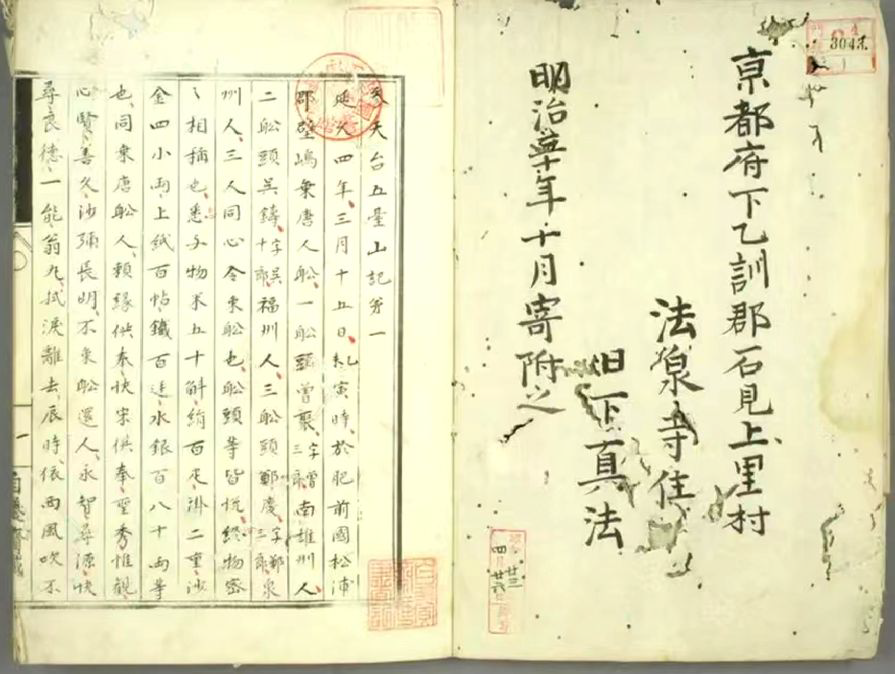 3043
京都府下乙訓郡石見上里村
法泉寺住
日下真法
明治年十月寄附之
四月廿六
廿三
天台五臺山記第一
延久四年三月十五日乙寅時於肥前國松浦
郡壁嶋乗唐人舩一舩頭曽聚字曽三郎南雄州人
二舩頭呉鑄字呉十郎福州人三舩頭鄭慶字鄭三郎泉
州人三人同心令乗舩也舩頭等皆悦給物密
〻相構也悉与物米五十斛絹百疋掛二重沙
金四小兩上紙百帖鐵百廷水銀百八十兩等
也同乗唐舩人頼縁供奉快宗供奉聖秀惟観
心賢善久沙弥長明不乗舩還人永智尋源快
尋良德一能翁丸拭淚離去辰時依西風吹不